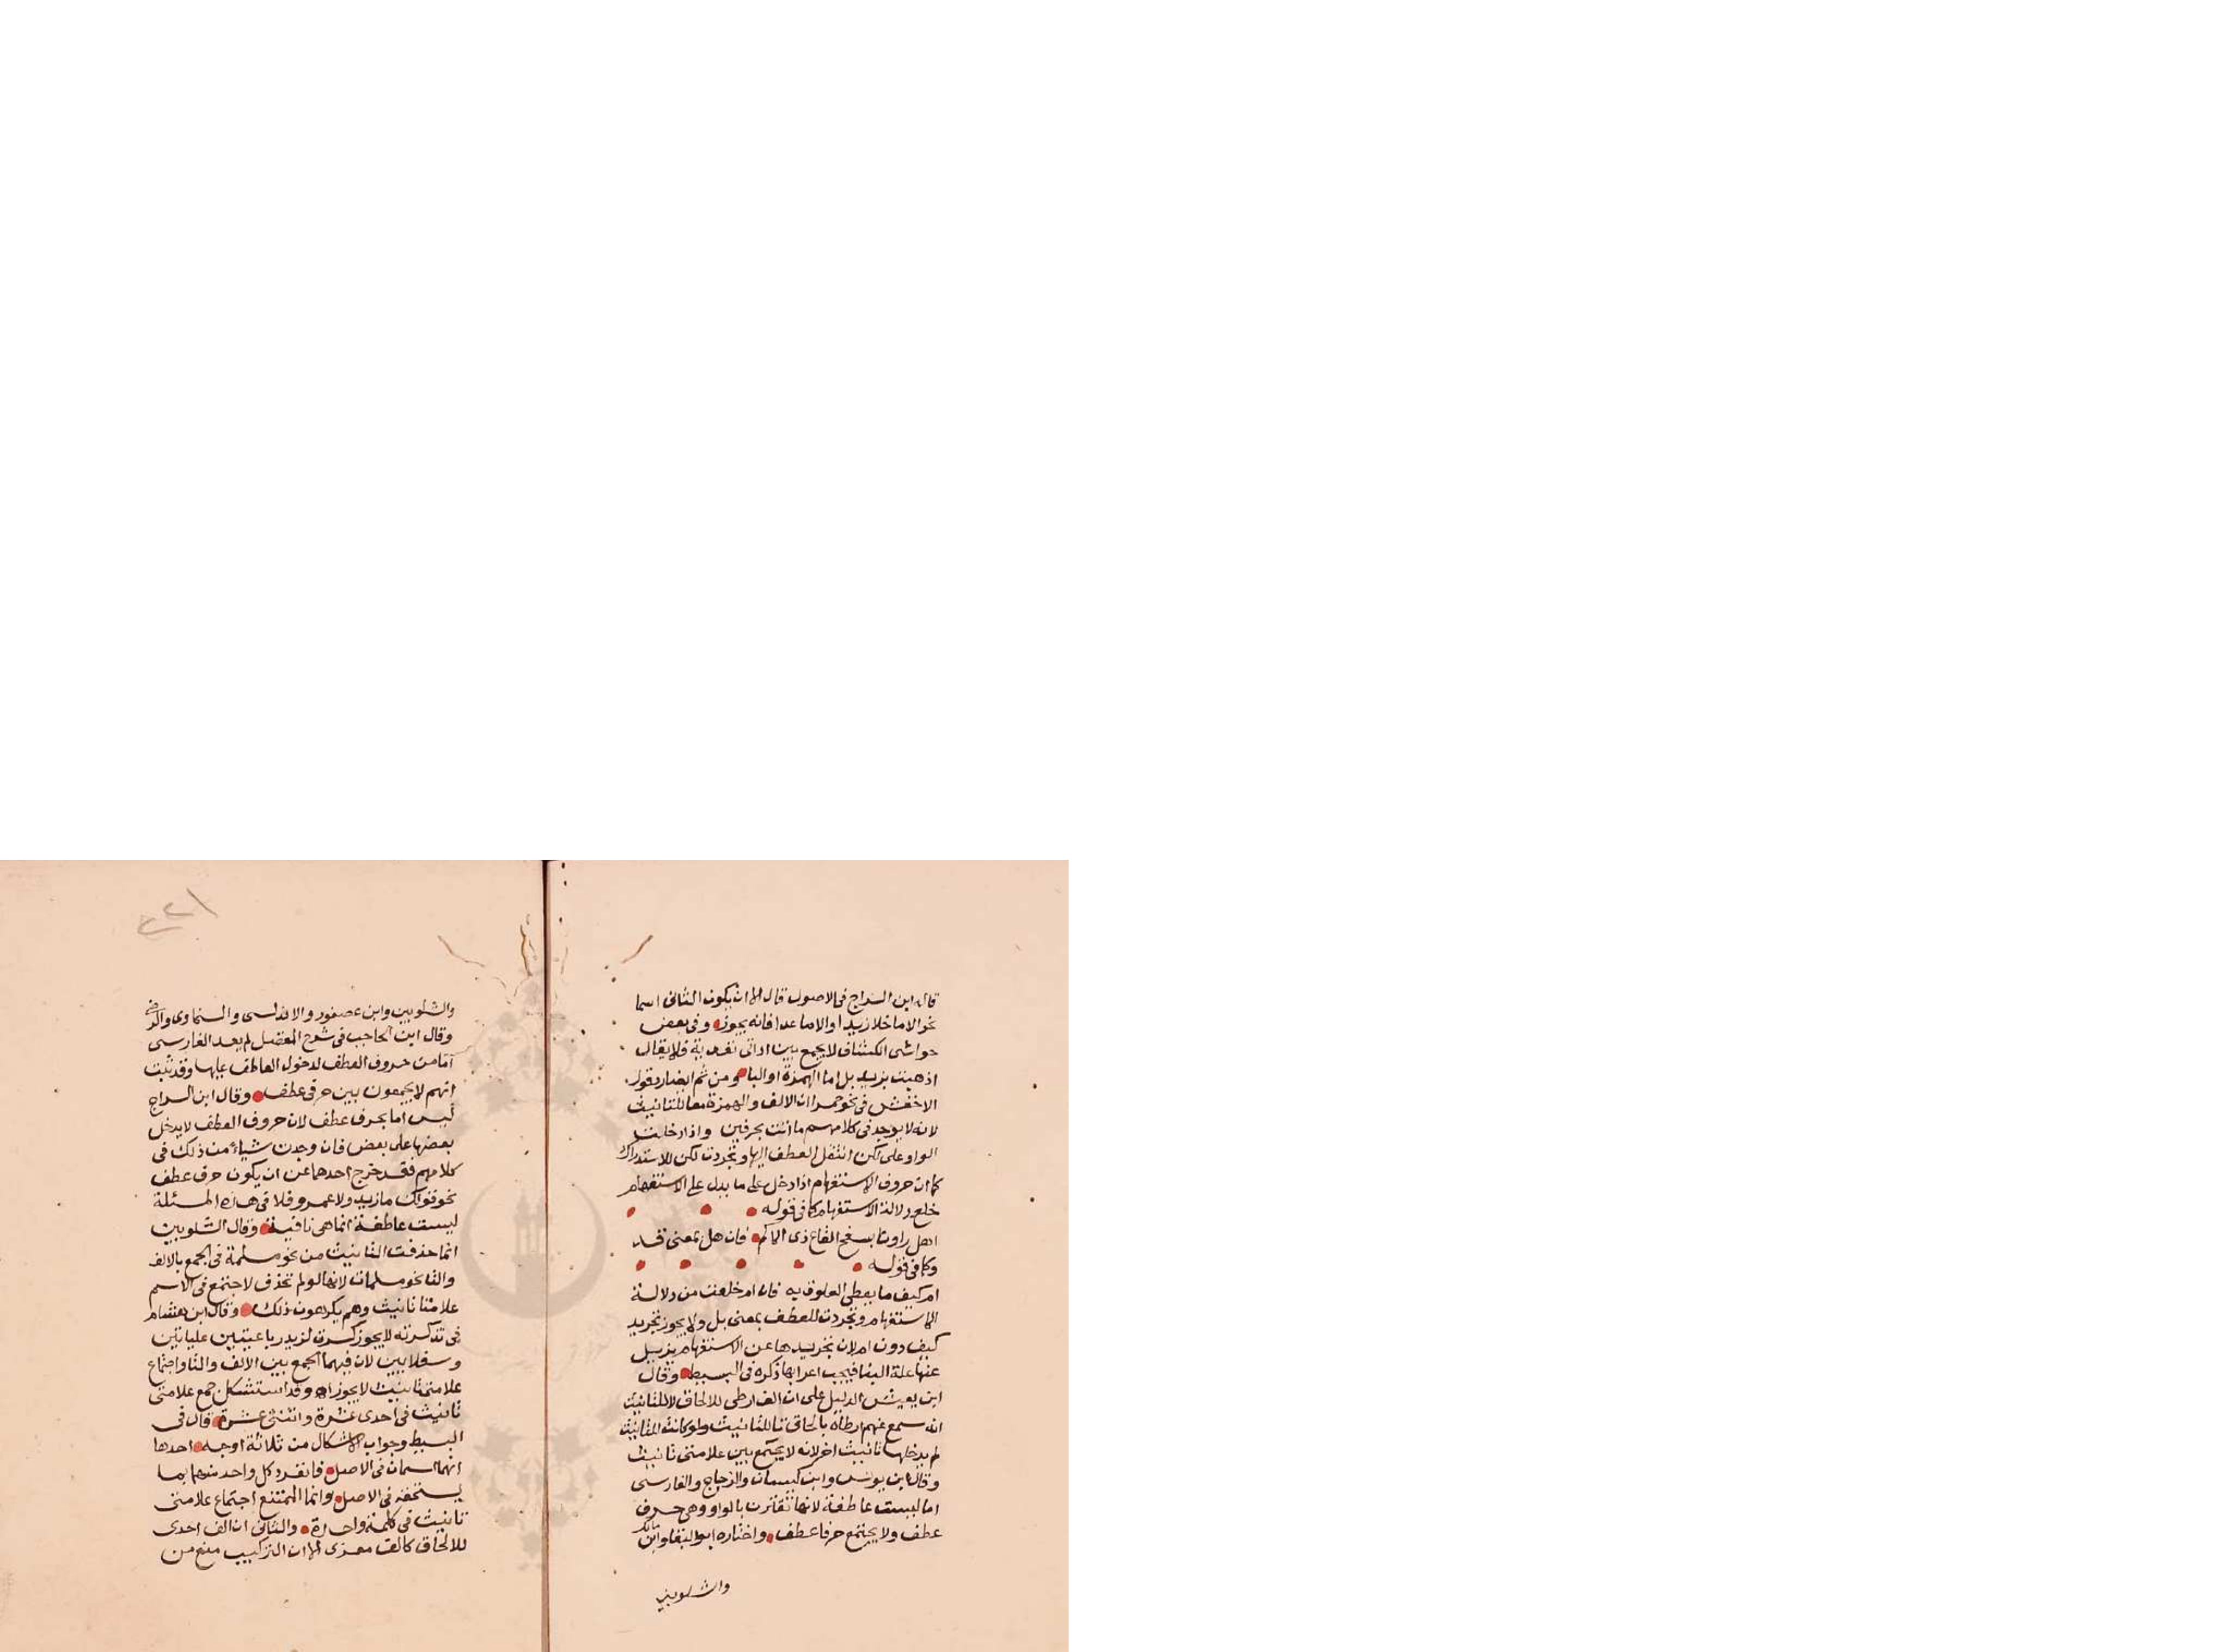 قال ابن السراج في الاصول قال الا ان يكون الثاني اسما
نحو الا ما خلا زيدا او الا ما عدا فانه يجوز وفي بعض
حواشي الكشاف لا يجمع بين اداتي تعدية فلا يقال
اذهبت بزيد بل اما الهمزة او البا ومن ثم ايضا رد قول
الاخفش في نحو حمرا ان الالف والهمزة معا للتانيث
لانه لا يوجد في كلامهم ما انث بحرفين واذا دخلت
الواو على لكن انتقل العطف اليها وتجردت لكن للاستدراك
كما ان حروف الاستفهام اذا دخل على ما يدل على الاستفهام
خلع دلالة الاستفهام كما في قوله
اهل راونا بسفح القاع ذى الاكم فان هل بمعنى قد
وكما في قوله
ام كيف ما يعطى العلوق به فان ام خلعت من دلالة
الاستفهام وتجردت للعطف بمعنى بل ولا يجوز تجريد
كيف دون ام لان تجريدها عن الاستفهام يزيل
عنها علة البنا فيجب اعرابها ذكره في البسيط وقال
ابن يعيش الدليل على ان الف ارطى للالحاق لا للتانيث
انه سمع عنهم ارطاه بالحاق تا للتانيث ولو كانت للتانيث
لم يدخلها تانيث اخر لانه لا يجتمع بين علامتي تانيث
وقال ابن يونس وابن كيسان والزجاج والفارسي
اما ليست عاطفة لانها تقترن بالواو وهي حرف
عطف ولا يجتمع حرفا عطف واختاره ابو البقا وابن مالك
والشلوبين
والشلوبين وابن عصفور والاندلسي والسخاوي والرضي
وقال ابن الحاجب في شرح المفصل لم يعد الفارسي
اما من حروف العطف لدخول العاطف عليها وقد ثبت
انهم لا يجمعون بين حرفي عطف وقال ابن السراج
ليس اما بحرف عطف لان حروف العطف لا يدخل
بعضها على بعض فان وجدت شياء من ذلك في
كلامهم فقد خرج احدهما عن ان يكون حرف عطف
نحو قولك ما زيد ولا عمرو فلا في هذه المسئلة
ليست عاطفة انما هي نافية وقال الشلوبين
انما حذفت التانيث من نحو مسلمة في الجمع بالالف
والتا نحو مسلمات لانها لو لم تحذف لاجتمع في الاسم
علامتا تانيث وهم يكرهون ذلك وقال ابن هشام
في تذكرته لا يجوز كسرت لزيد رباعيتين عليانين
وسفلايين لان فيهما الجمع بين الالف والتا واجتماع
علامتي تانيث لا يجوز اه وقد استشكل جمع علامتي
تانيث في احدى عشرة واثنتي عشرة قال في
البسيط وجواب الاشكال من ثلاثة اوجه احدها
انهما اسمان في الاصل فانفرد كل واحد منهما بما
يستحقه في الاصل وانما الممتنع اجتماع علامتي
تانيث في كلمة واحدة والثاني ان الف احدى
للالحاق كالف معزى الا ان التركيب منع من